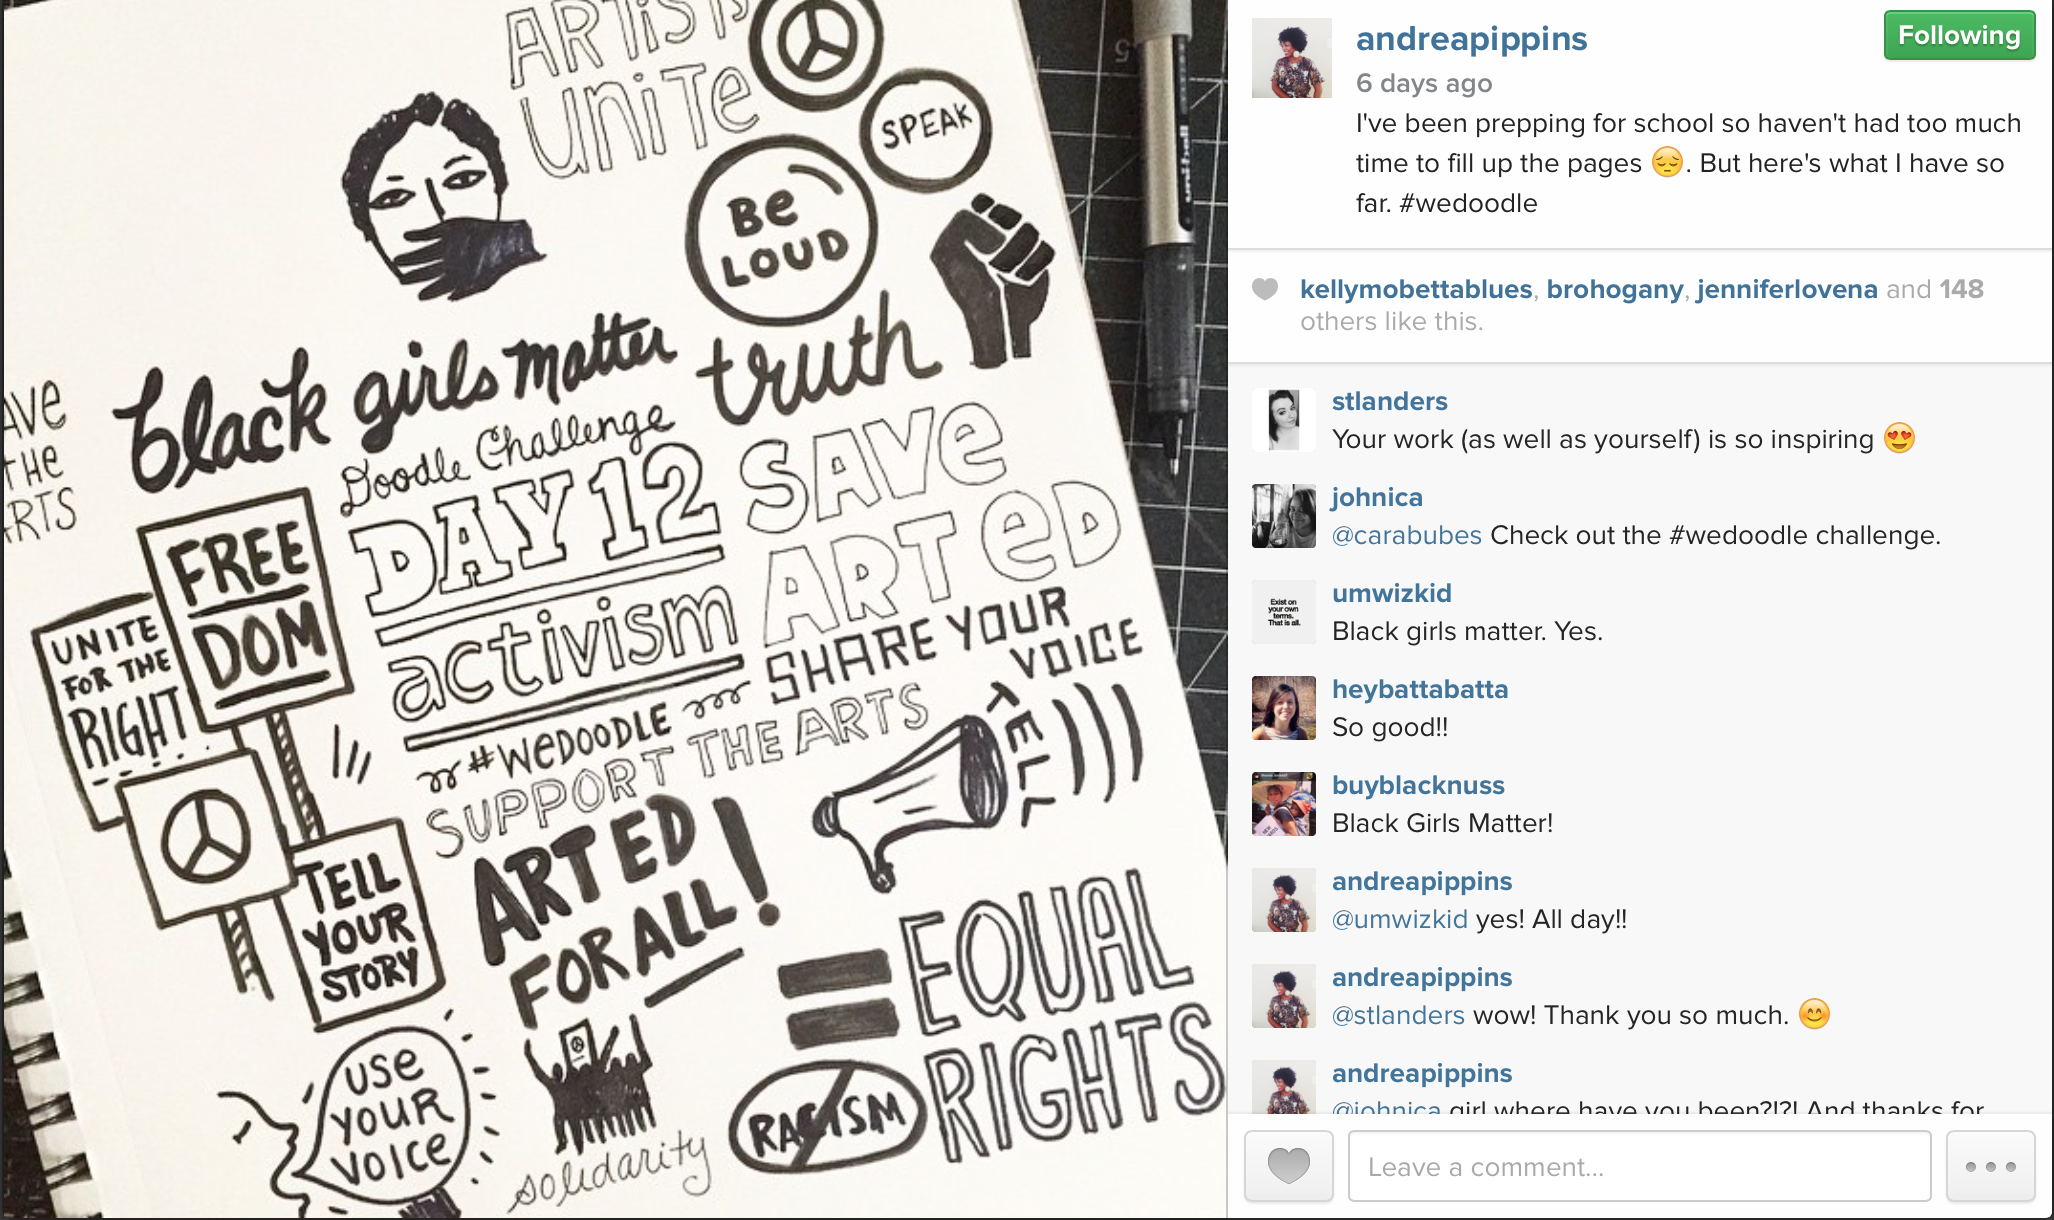 ARTISTS
UNITE
SPEAK
Be
LOUD
black girls matter
truth
AVE
THE
ARTS
Doodle Challenge
DAY 12
activism
#WEDOODLE
SAVE
ART ED
SHARE YOUR
VOICE
TELL
SUPPORT THE ARTS
FREE
DOM
UNITE
FOR THE
RIGHT
TELL
YOUR
STORY
ART ED
FOR ALL!
EQUAL
RIGHTS
RACISM
USE
YOUR
VOICE
solidarity
uniball
andreapippins
Following
6 days ago
I've been prepping for school so haven't had too much
time to fill up the pages 😔. But here's what I have so
far. #wedoodle
kellymobettablues, brohogany, jenniferlovena and 148
others like this.
stlanders
Your work (as well as yourself) is so inspiring 😍
johnica
@carabubes Check out the #wedoodle challenge.
Exist on
your own
terms.
That is all.
umwizkid
Black girls matter. Yes.
heybattabatta
So good!!
buyblacknuss
Black Girls Matter!
andreapippins
@umwizkid yes! All day!!
andreapippins
@stlanders wow! Thank you so much. 😊
andreapippins
@johnica girl where have you been?!?! And thanks for
Leave a comment...